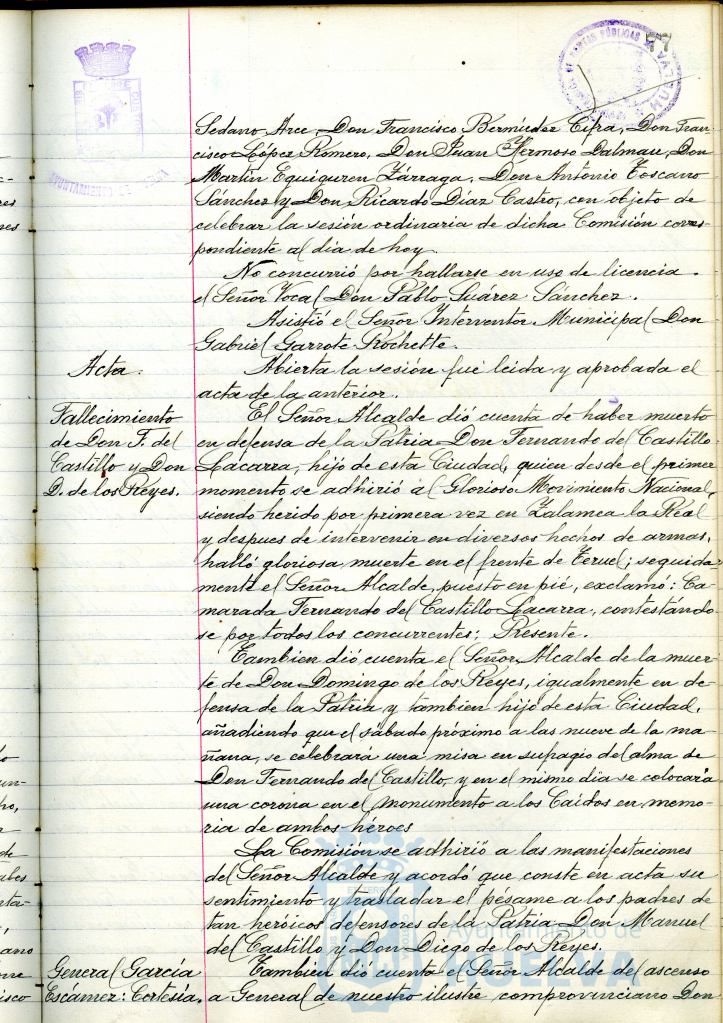 77
AYUNTAMIENTO DE
HUELVA
Sedano Arce, Don Francisco Bermúdez Cifra, Don Fran-
cisco López Romero, Don Juan Hermoso Dalmau, Don
Martín Equiguren Zárraga, Don Antonio Toscano
Sánchez y Don Ricardo Díaz Castro, con objeto de
celebrar la sesión ordinaria de dicha Comisión corres-
pondiente al día de hoy.
No concurrió por hallarse en uso de licencia
el Señor Vocal Don Pablo Suárez Sánchez.
Asistió el Señor Interventor Municipal Don
Gabriel Garrote Rochette.
Acta.
Abierta la sesión fué leida y aprobada el
acta de la anterior.
Fallecimiento
de Don F. del
Castillo y Don
D. de los Reyes.
El Señor Alcalde dió cuenta de haber muerto
en defensa de la Patria Don Fernando del Castillo
Lacarra, hijo de esta Ciudad, quien desde el primer
momento se adhirió al Glorioso Movimiento Nacional,
siendo herido por primera vez en Zalamea la Real
y despues de intervenir en diversos hechos de armas,
halló gloriosa muerte en el frente de Teruel; seguida-
mente el Señor Alcalde, puesto en pié, exclamó: Ca-
marada Fernando del Castillo Lacarra, contestándo-
se por todos los concurrentes; Presente.
Tambien dió cuenta el Señor Alcalde de la muer-
te de Don Domingo de los Reyes, igualmente en de-
fensa de la Patria y tambien hijo de esta Ciudad,
añadiendo que el sábado próximo a las nueve de la ma-
ñana, se celebrará una misa en sufragio del alma de
Don Fernando del Castillo, y en el mismo día se colocará
una corona en el monumento a los Caídos en memo-
ria de ambos héroes
La Comisión se adhirió a las manifestaciones
del Señor Alcalde y acordó que conste en acta su
sentimiento y trasladar el pésame a los padres de
tan heróicos defensores de la Patria Don Manuel
del Castillo y Don Diego de los Reyes.
General García
Escámez: Cortesía.
Tambien dió cuenta el Señor Alcalde del ascenso
a General de nuestro ilustre comprovinciano Don
Ayuntamiento de
HUELVA